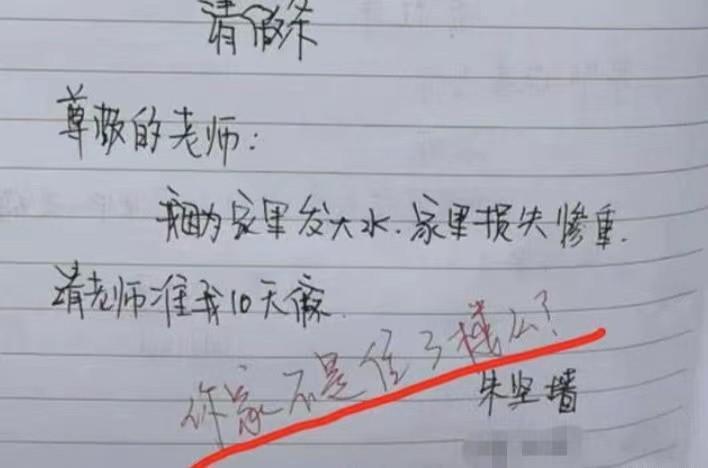 请假条
尊敬的老师：
我因为家里发大水.家里损失惨重.
请老师准我10天假.
你家不是住3楼么？
朱坚墙